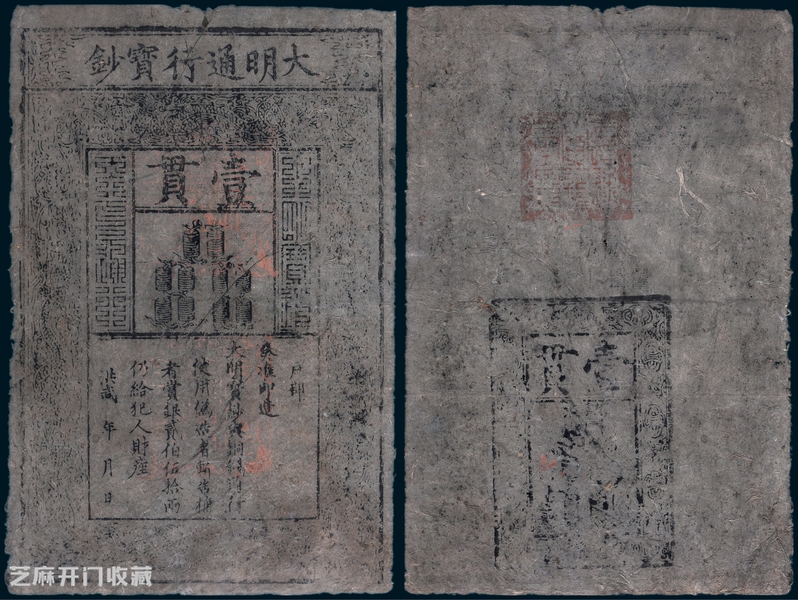 大明通行寶鈔
壹貫
戶部
奏准印造
大明寶鈔與銅錢通行
使用偽造者斬告捕
者賞銀貳伯伍拾兩
仍給犯人財產
洪武 年 月 日
壹貫
芝麻开门收藏